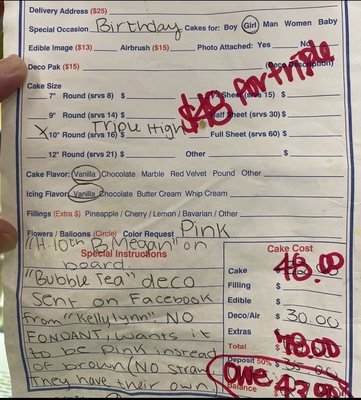 Delivery Address ($25)
Special Occasion Birthday Cakes for: Boy Girl Man Women Baby
Edible Image ($13) Airbrush ($15) Photo Attached: Yes No
Deco Pak ($15) (Deco Description)
$48 for triple
Cake Size
7" Round (srvs 8) $ 1/4 Sheet (srvs 15) $
9" Round (srvs 14) Half Sheet (srvs 30) $
X 10" Round (srvs 16) $ Triple High Full Sheet (srvs 60) $
12" Round (srvs 21) $ Other $
Cake Flavor: Vanilla Chocolate Marble Red Velvet Pound Other
Icing Flavor: Vanilla Chocolate Butter Cream Whip Cream
Fillings (Extra $) Pineapple / Cherry / Lemon / Bavarian / Other
Flowers / Balloons (Circle) Color Request Pink
"H. 10th B Megan" on
Special Instructions
board.
"Bubble Tea" deco
sent on Facebook
from "Kelly Lynn". NO
FONDANT, wants it
to be pink instead
of brown (No straw
They have their own)
Cake Cost
Cake $ 48.00
Filling $
Edible $
Deco/Air $ 30.00
Extras $
Total $ 78.00
Deposit 50% $
Balance
owe